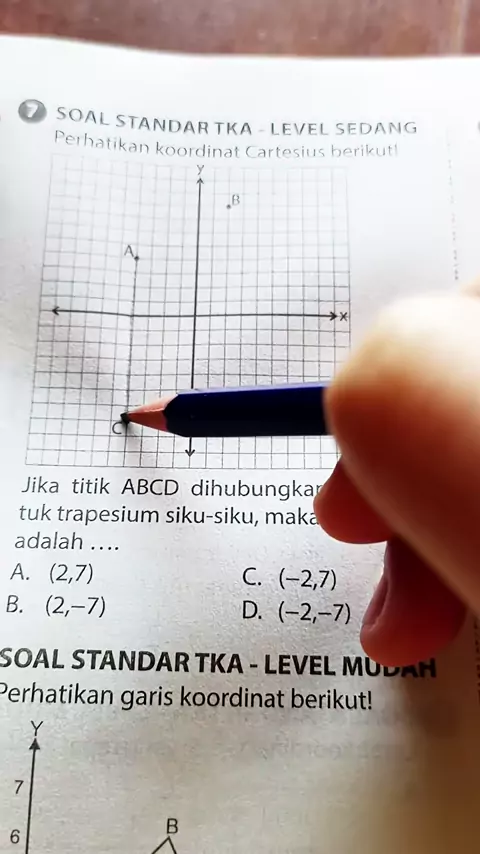 7 SOAL STANDAR TKA - LEVEL SEDANG
Perhatikan koordinat Cartesius berikut!
Y
B
A
X
C
Jika titik ABCD dihubungkan
tuk trapesium siku-siku, maka
adalah ....
A. (2,7)
C. (−2,7)
B. (2,−7)
D. (−2,−7)
SOAL STANDAR TKA - LEVEL MUDAH
Perhatikan garis koordinat berikut!
Y
7
B
6